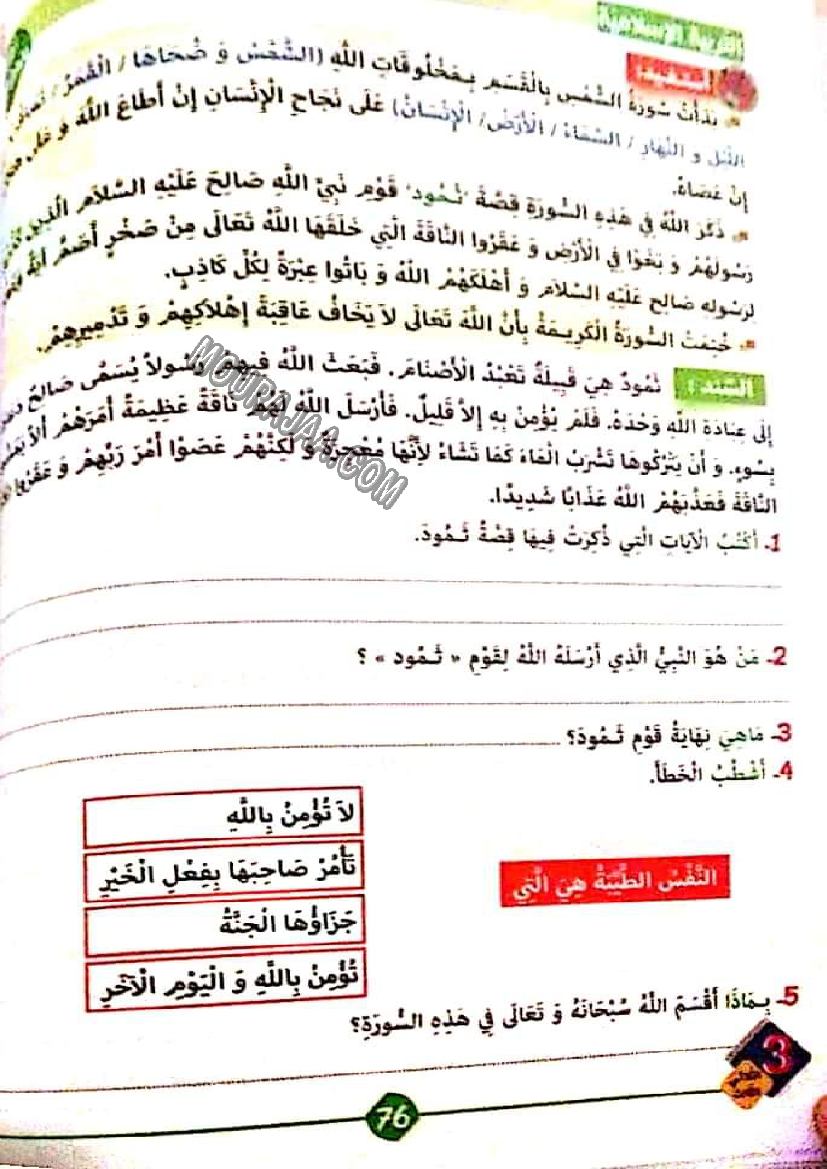 التربية الإسلامية
أستفيد:
بَدَأَتْ سُورَةُ الشَّمْسِ بِالْقَسَمِ بِمَخْلُوقَاتِ اللَّهِ (الشَّمْسُ وَ ضُحَاهَا / الْقَمَرُ /
اللَّيْلِ و النَّهَارِ / السَّمَاءُ / الْأَرْضُ/ الْإِنْسَانُ) عَلَى نَجَاحِ الْإِنْسَانِ إِنْ أَطَاعَ اللَّهَ وَ
إِنْ عَصَاهُ.
ذَكَرَ اللَّهُ فِي هَذِهِ السُّورَةِ قِصَّةَ "ثَمُود" قَوْمِ نَبِيِّ اللَّهِ صَالِحَ عَلَيْهِ السَّلَامَ الَّذِينَ
رَسُولَهُمْ وَ بَغَوْا فِي الْأَرْضِ وَ عَقَرُوا النَّاقَةَ الَّتِي خَلَقَهَا اللَّهُ تَعَالَى مِنْ صَخْرٍ أَصَمَّ
لِرَسُولِهِ صَالِح عَلَيْهِ السَّلَامَ وَ أَهْلَكَهُمْ اللَّهُ وَ بَاتُوا عِبْرَةً لِكُلِّ كَاذِبٍ.
خُتِمَتْ السُّورَةُ الْكَرِيمَةُ بِأَنَّ اللَّهَ تَعَالَى لَا يَخَافُ عَاقِبَةَ إِهْلَاكِهِمْ وَ تَدْمِيرِهِمْ.
السَّنَد : ثَمُودٌ هِيَ قَبِيلَةٌ تَعْبُدُ الْأَصْنَامَ. فَبَعَثَ اللَّهُ فِيهِمْ رَسُولاً يُسَمَّى صَالِحٌ
إِلَى عِبَادَةِ اللَّهِ وَحْدَهُ. فَلَمْ يُؤْمِنْ بِهِ إِلَّا قَلِيلٌ. فَأَرْسَلَ اللَّهُ لَهُمْ نَاقَةً عَظِيمَةً أَمَرَهُمْ أَلَّا
بِسُوءٍ. وَ أَنْ يَتْرُكُوهَا تَشْرَبُ الْمَاءَ كَمَا تَشَاءُ لِأَنَّهَا مُعْجِزَةٌ وَ لَكِنَّهُمْ عَصَوْا أَمْرَ رَبِّهِمْ وَ عَقَرُوا
النَّاقَةَ فَعَذَّبَهُمْ اللَّهُ عَذَابًا شَدِيدًا.
1- أَكْتُبُ الْآيَاتِ الَّتِي ذُكِرَتْ فِيهَا قِصَّةُ ثَمُودَ.
2- مَنْ هُوَ النَّبِيُّ الَّذِي أَرْسَلَهُ اللَّهُ لِقَوْمِ « ثَمُود » ؟
3- مَاهِيَ نِهَايَةُ قَوْمِ ثَمُودَ؟
4- أَشْطُبُ الْخَطَأَ.
النَّفْسُ الطَّيِّبَةُ هِيَ الَّتِي
لَا تُؤْمِنُ بِاللَّهِ
تَأْمُرُ صَاحِبَهَا بِفِعْلِ الْخَيْرِ
جَزَاؤُهَا الْجَنَّةُ
تُؤْمِنُ بِاللَّهِ وَ الْيَوْمِ الْآخَرِ
5- بِمَاذَا أَقْسَمَ اللَّهُ سُبْحَانَهُ وَ تَعَالَى فِي هَذِهِ السُّورَةِ؟
3
76
MOURAJAA.COM